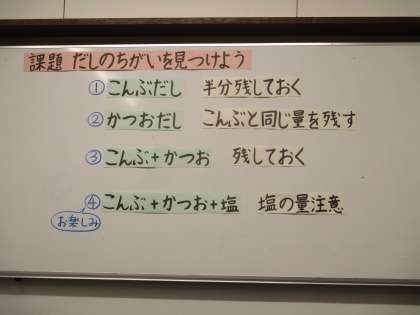 課題 だしのちがいを見つけよう
①こんぶだし 半分残しておく
②かつおだし こんぶと同じ量を残す
③こんぶ+かつお 残しておく
④こんぶ+かつお+塩 塩の量注意
お楽しみ